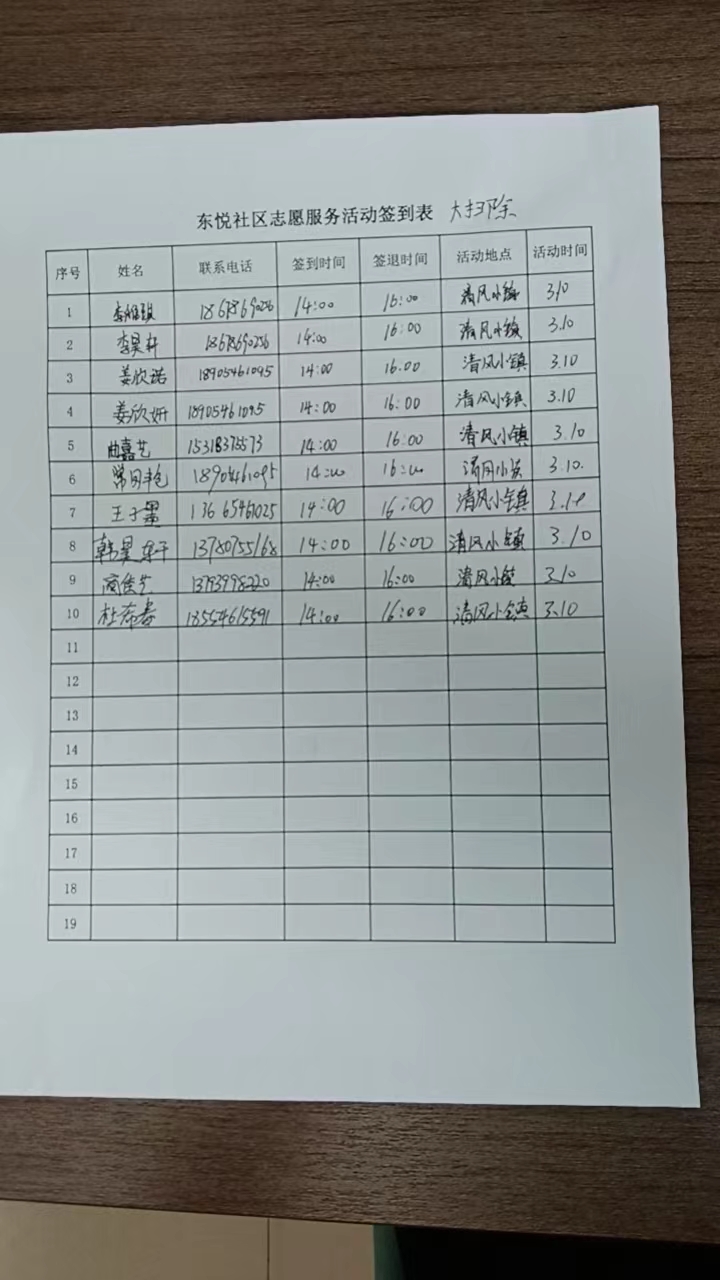 东悦社区志愿服务活动签到表 大扫除
序号 姓名 联系电话 签到时间 签退时间 活动地点 活动时间
1 18678690256 14:00 16:00 清风小镇 3.10
2 李昊轩 18678690256 14:00 16:00 清风小镇 3.10
3 姜欣诺 18905461095 14:00 16.00 清风小镇 3.10
4 姜欣妍 18905461095 14:00 16:00 清风小镇 3.10
5 曲嘉艺 15318375573 14:00 16:00 清风小镇 3.10
6 18904461095 14:00 16:00 3.10.
7 王子墨 13665461025 14:00 16:00 清风小镇 3.10
8 韩昊轩 13780755168 14:00 16:00 清风小镇 3.10
9 商佳艺 13793998220 14:00 16:00 清风小镇 3.10
10 杜希春 18554615591 14:00 16:00 清风小镇 3.10
11
12
13
14
15
16
17
18
19